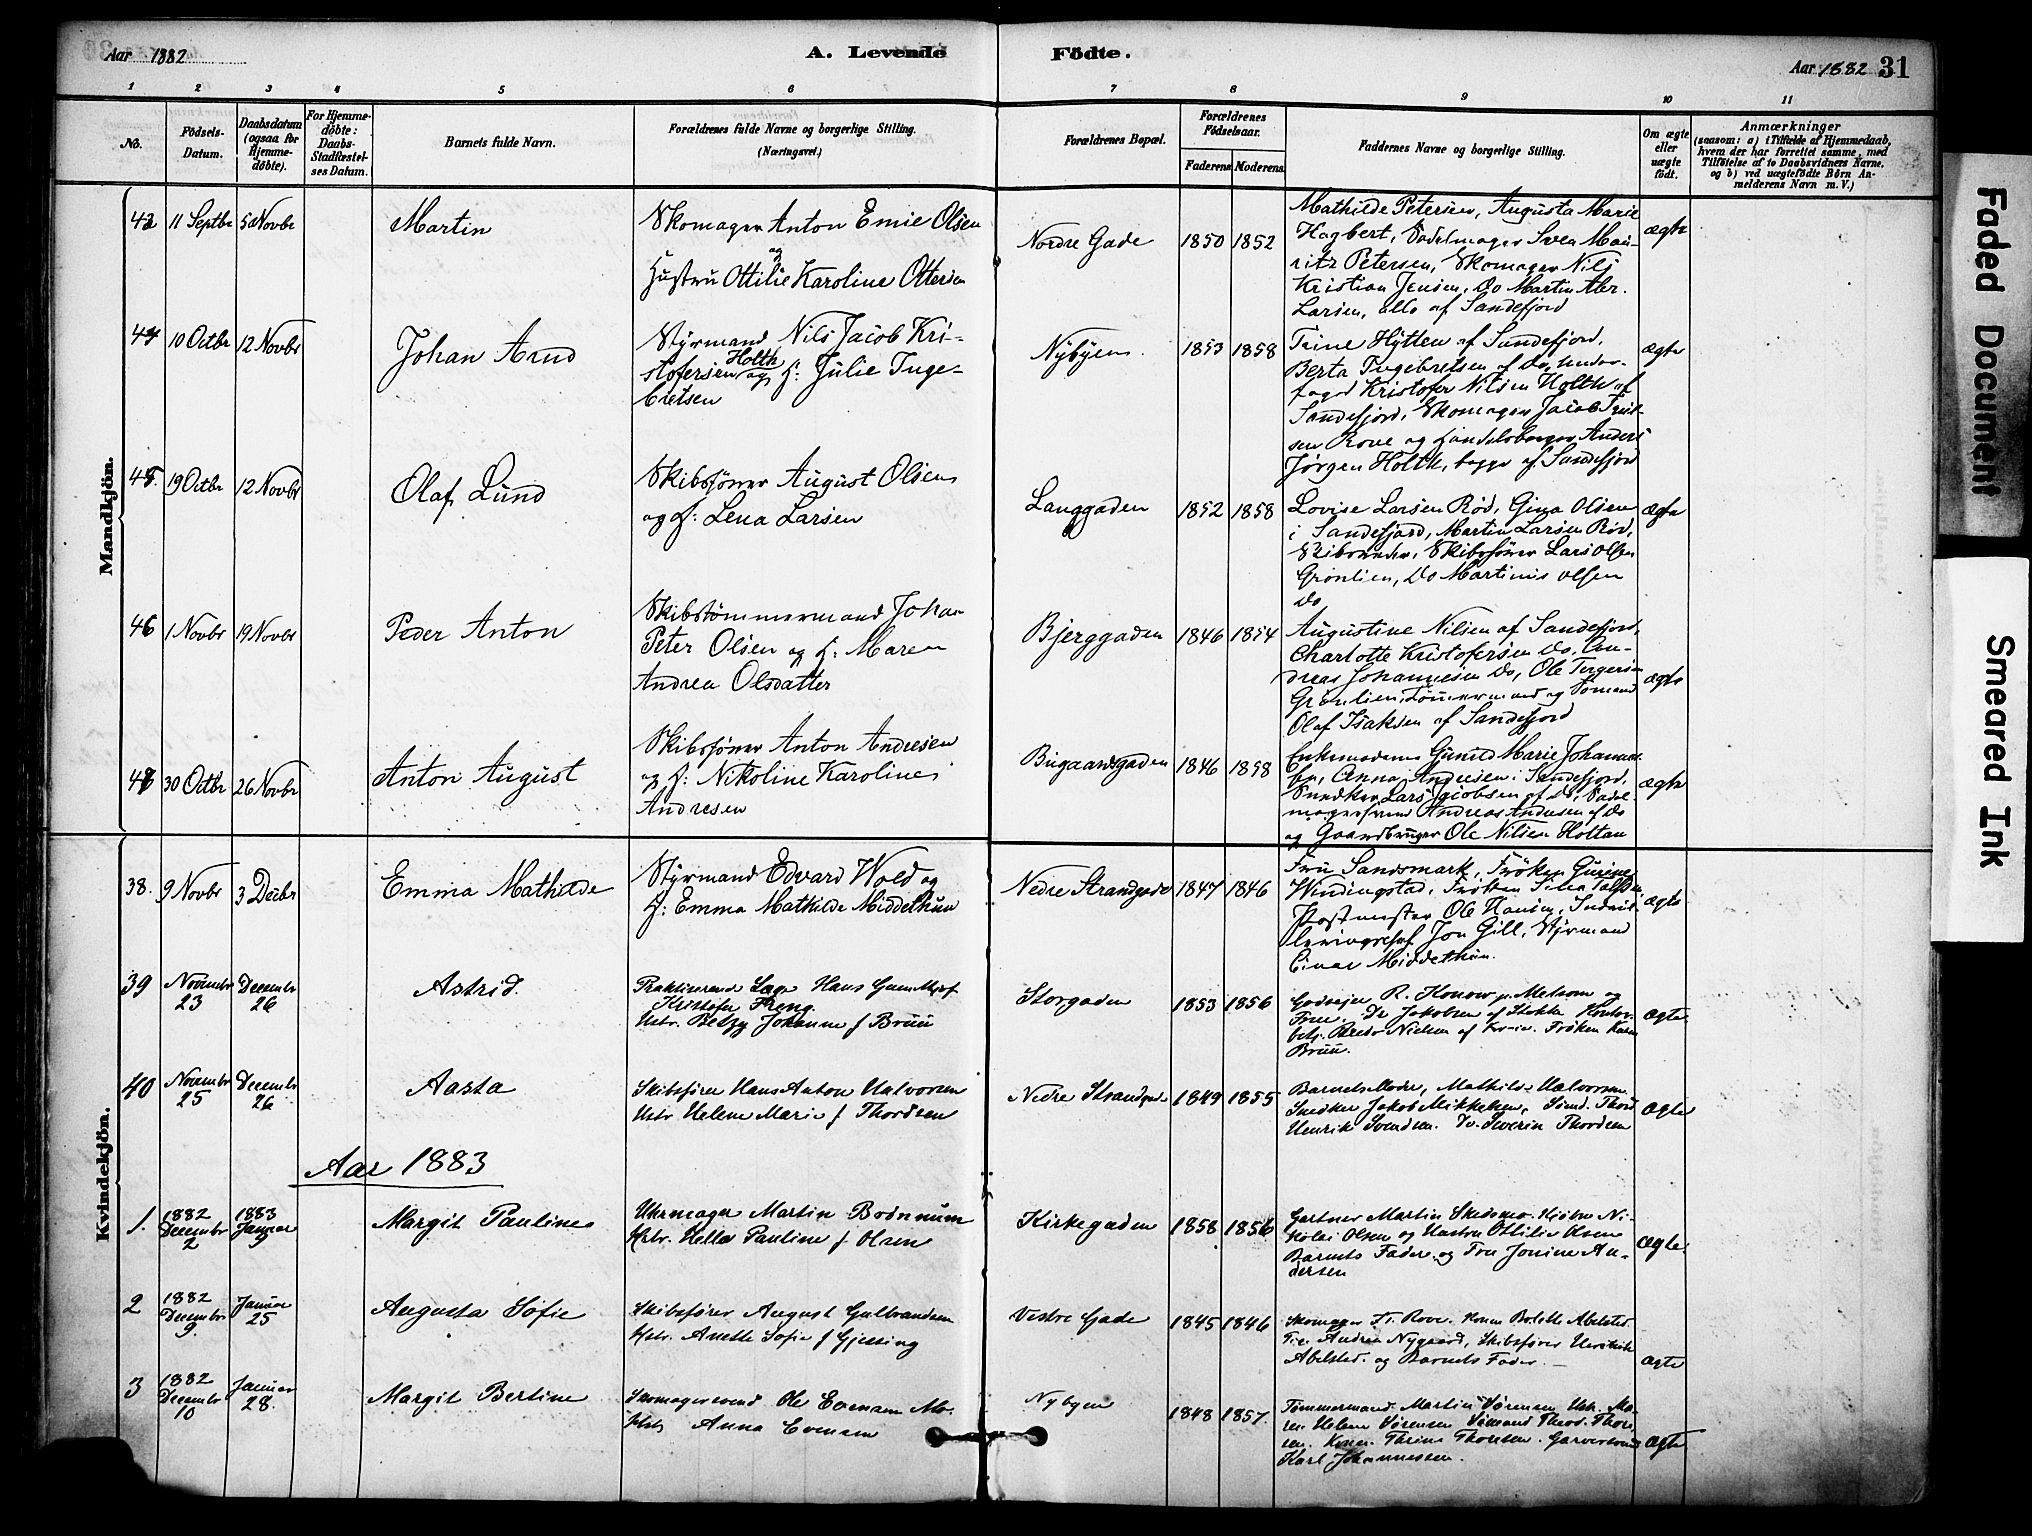 Aar 1882
A. Levende Födte.
Aar 1882 31
1 2 3 4 5 6 7 8 9 10 11
No.
Födsels-Datum.
Daabsdatum (ogsaa for Hjemmedöbte).
For Hjemmedöbte: Daabs-Stadfæstelses Datum.
Barnets fulde Navn.
Forældrenes fulde Navne og borgerlige Stilling.
(Næringsvei.)
Forældrenes Bopæl.
Forældrenes Födselsaar.
Faderens Moderens
Faddernes Navne og borgerlige Stilling.
Om ægte eller uægte födt.
Anmærkninger
(saasom: a) i Tilfælde af Hjemmedaab,
hvem der har forrettet samme, med
Tilföielse af to Daabsvidners Navne.
og b) ved uægtefödte Börn Anmelderens Navn m. V.)
Mandkjön.
11 Septbr 5 Novbr
Martin
Skomager Anton Emil Olsen
og
Hustru Ottilie Karoline Ottersen
Nordre Gade
1850 1852
Mathilde Petersen, Augusta Marie
Hagbert, Sadelmager Sven Mau-
ritz Petersen, Skomager Nils
Kristian Jensen, Do Martin Abr.
Larsen, alle af Sandefjord
ægte
44 10 Octbr 12 Novbr
Johan Arnd
Styrmand Nils Jacob Kri-
stofersen Holth og H: Julie Inge-
bretsen
Nybyen
1853 1858
Trine Hytten af Sandefjord,
Berta Ingebretsen af Do, Under-
foged Kristofer Nilsen Holth af
Sandefjord, Skomager Jacob
sen Rove og Handelsborger Anders
Jørgen Holth, begge af Sandefjord
ægte
45. 19 Octbr 12 Novbr
Olaf Lund
Skibsfører August Olsen
og H: Lena Larsen
Langgaden
1852 1858
Lovise Larsen Rød, Gina Olsen
i Sandefjord, Martin Larsen Rød,
Skibsreder, Skibsfører Lars Olsen
Grønlien, Do Martinis Olsen
Do
ægte
46 1 Novbr 19 Novbr
Peder Anton
Skibstømmermand Johan
Peter Olsen og H: Maren
Andrea Olsdatter
Bjerggaden
1846 1854
Augustine Nilsen af Sandefjord,
Charlotte Kristofersen Do, An-
dreas Johannesen Do, Ole Torgersen
Grønlien, Tømmermand og Sømand
Olaf Isaksen af Sandefjord
ægte
30 Octbr 26 Novbr
Anton August
Skibsfører Anton Andresen
og H: Nikoline Karoline
Andresen
Bugaardsgaden
1846 1858
Enkemadame Gunild Marie Johannes-
sen, Anna Andresen i Sandefjord,
Snedker Lars Jacobsen af Do, Sadel-
magersvend Andreas Andersen af Do
og Gaardbruger Ole Nilsen Holtan
ægte
Kvindekjön.
38. 9 Novbr 3 Decbr
Emma Mathilde
Styrmand Edvard Wold og
H: Emma Mathilde Middelthun
Nedre Strandgade
1847 1846
Fru Sandsmark, Frøken Gurine
Windingstad, Frøken
Postmester Ole Hansen,
Jon Gill, Styrmand
Einar Middelthun.
ægte
39 November 23 December 26
Astrid.
Praktiserende Læge Hans
Kristofer Freng.
Hstr. Betzy Johanne f Bruu
Storgaden
1853 1856
Godseier R. Konow p. Melsom og
Frue. Dr Jakobsen af Stokke Kontor-
betj. Nielsen af Kr-ia. Frøken Karen
Bruu.
Ægte.
40 November 25 December 26
Aasta
Skibsfører Hans Anton Halvorsen
Hstr. Helene Marie f Thordsen
Nedre Strandgade
1849 1855
Barnets Moder, Mathilde Halvorsen
Snedker Jakob Mikkelsen, Sømd. Thord
Henrik Svendsen. Do. Severin Thordsen
Ægte
Aar 1883
1. 1882 December 2 1883 Januar 5
Margit Pauline
Uhrmager Martin Bodnnum
Hstr. Hella Pauline f Olsen
Kirkegaden
1858 1856
Gartner Martin Skedsmo. Kjøbm Ni-
kolai Olsen og Hustru Ottilie Olsen
Barnets Fader og Fru Jonine An-
dersen
Ægte.
2 1882 December 9. Januar 25
Augusta Sofie
Skibsfører August Gulbrandsen
Hstr. Anette Sofie f Gjessing
Vestre Gade
1845 1846
Skomager Fr. Rove. Konen Bolette Abelsted.
Andrea Nygaard, Skibsfører Henrik
Abelsted. og Barnets Fader. —
ægte
3 1882 December 10 Januar 28.
Margit Bertine
Skomagersvend Ole Evensen
Hstr. Anna Evensen
Nybyen
1848 1857.
Tømmermand Martin Sørensen Hst. Ma-
ren Helene Sørensen Sømand Theod. Thor-
sen. Konen Thrine Thorsen. Garversvend
Karl Johannessen.
ægte
Faded Document
Smeared Ink